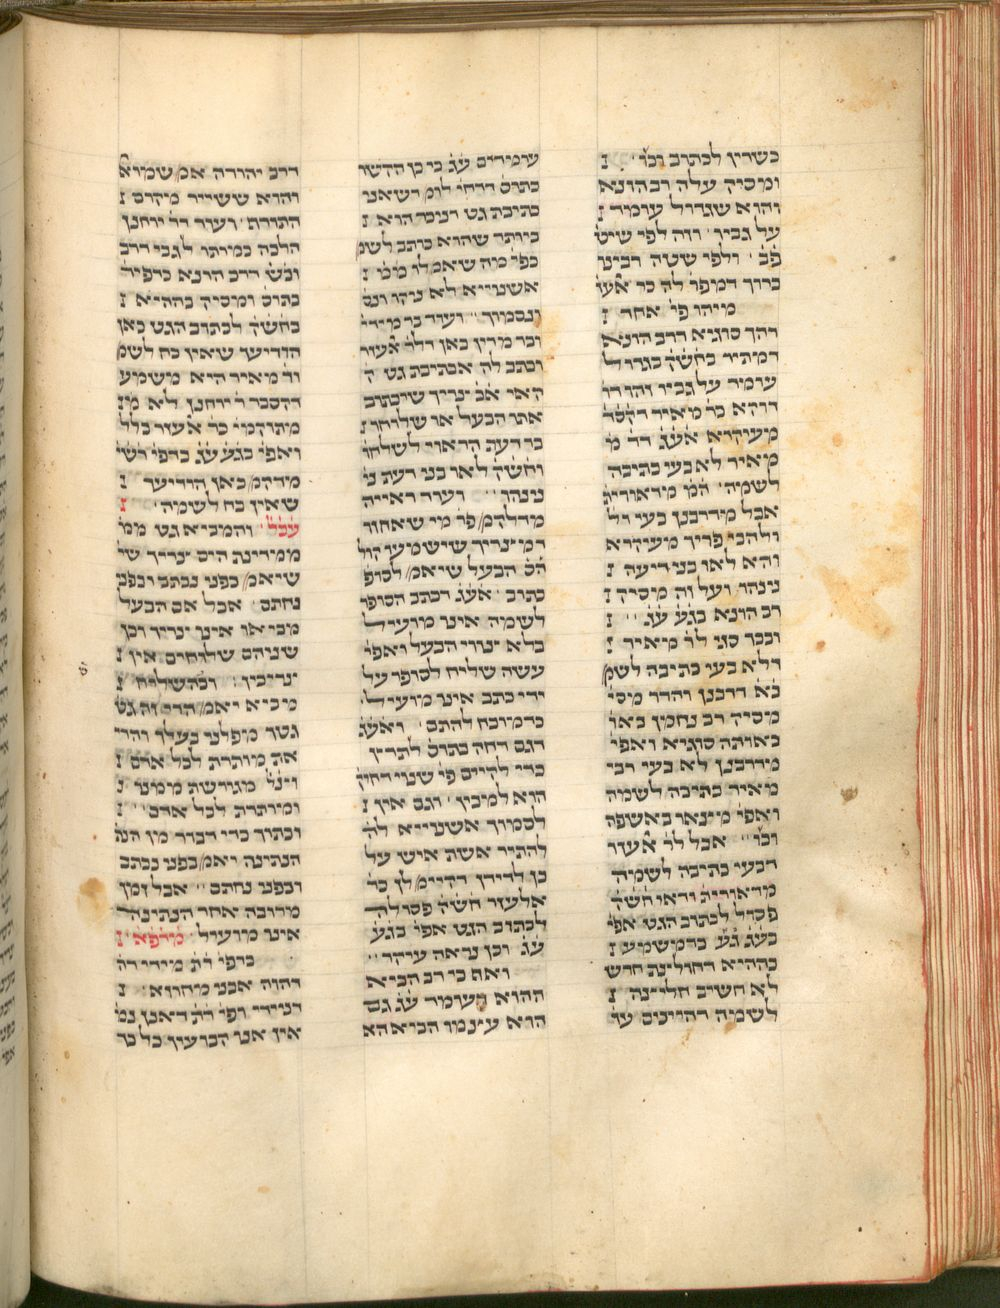 כשרין לכתוב וכו'
ומסיק עלה רב הונא
והוא שגדול עומד
על גביו ' וזה לפי שיט'
פב' ' ולפי ששה רבינו
ברוך דמופר לה כר' אעז'
מיהו פי' אחד
דהך סוגיא דרב הונא
דמתיר בחשק בגדול
עומד על גביו זהו דו
דוקא כר מאיר דקסד
מעיקרא אעג דר מ'
מאיר לא בעי כתיבה
לשמה' המ מדאורית
אבל מדרבנן בעי ול
ולהכי פריך מעיקרא
והא לאו בני דיעה
נינהו ועל זה מסיק
רב הונא בגע עג ''
וכבר סגי לר מאיר
דלא בעי כתיבה לשמ
בא דרבנן והדר מסי
מסיק רב נחמן באו
באותה סוגיא ואפי'
מדרבנן לא בעי רבי
מאיר כתיבה לשמה
ואפי' מיצאו באשפה
וכו'' אבל לר אעזר
דבעי כתיבה לשמה
מדאורית ודאי חשק
פסול לכתוב הגט אפי'
בעג גע כדמשמע
בההיא דחולצת חרש
לא חשיב חליצה
לשמה דהויכים עו
עומדים עג כי כן הקשו
בתוס דדחי לומ רשאנו
כתיבת גט דומה הוא
ביותר שהוא כותב לשמ
כפי מה שיאמ לו ממו
אשנוייא לא ניקו ונס
ונסמוך '' ועוד כר מידי
וכר מודין כאן דלר אעזר
וכתב לה אכתיבת גט ק
קאי אכ צריך שיכתוב
אותו הבעל או שלוחו
בר דעת הראוי לשלחו
וחשק לאו בני דעת ני
נינהו '' ועוד ראייה
מדלקמ פר מי שאחזו
דמצריך שישמעו קול
קס הבעל שיאמ לסופ
כתוב ' אעג דכתב הסופר
לשמה אינו מועיל
בלא ציווי הבעל ואפי'
עשה שליח לסופר על
ידי כתב אינו מועיל
כדמוכח להתם ' ואעג
דגם דחה בתוס לתרץ
כדי לקיים פי שנוי דחוק
הוא למבין ' וגם אין
לסמוך אשנוייא לק
להתיר אשת איש על
כן לדידן דקיימ לן כר
אלעזר חשק פסולה
לכתוב הגט אפי' בגע
עג וכן נראה עיקר ''
ואת כי רב הביא
ההוא העומד עג גם
הוא עצמו הביא הא
דרב יהודה אמ שמוא
והוא ששייר מקום
התורף ועוד דר יוחנן
הלכה כמותו לגבי דרב
וכש דרב הונא כדפיר
בתוס ומסיק בההיא
בחשק לכתוב הגט כאן
הודיעך שאין כח לשמ
ור מאיר היא משמע
דקסבר ר יוחנן לא מת
מתוקמי כר אעזר כלל
ואפי בגע עג כדפי' רשי
מדקמ כאן הודיעך
שאין כח לשמה '
עכל ' והמביא גט ממ
ממדינת הים צריך שי
שיאמ בפני נכתב ובפני
נחתם ' אבל אם הבעל
מביאו אינו צריך וכן
שניהם שלוחים אין
צריכין ' וכהשליח
מביא יאמ הרי זה גט
גטך מפלוני בעלך והרי
את מותרת לכל אדם
וצל מגורשת ממנו
ומותרת לכל אדם ''
ובתוך כדי דבור מן הנת
הנתינה יאמ בפני נכתב
ובפני נחתם '' אבל זמן
מרובה אחר הנתינה
אינו מועיל ' מרפא
כדפי רת מידי דה
דהוה אבני מחוזא '
דניידי ופי' רת דאנן נמ
אין אנו הבקיעין כל כך